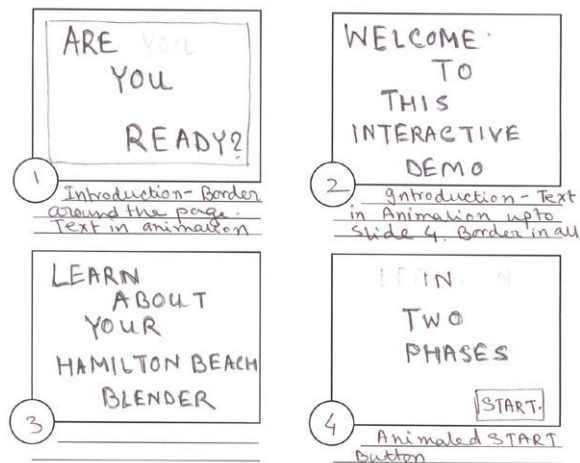 ARE
YOU
READY?
1
Introduction - Border
around the page.
Text in animation
WELCOME
TO
THIS
INTERACTIVE
DEMO
2
Introduction - Text
in Animation upto
Slide 4. Border in all
LEARN
ABOUT
YOUR
HAMILTON BEACH
BLENDER
3
IN
TWO
PHASES
START.
4
Animated START
Button